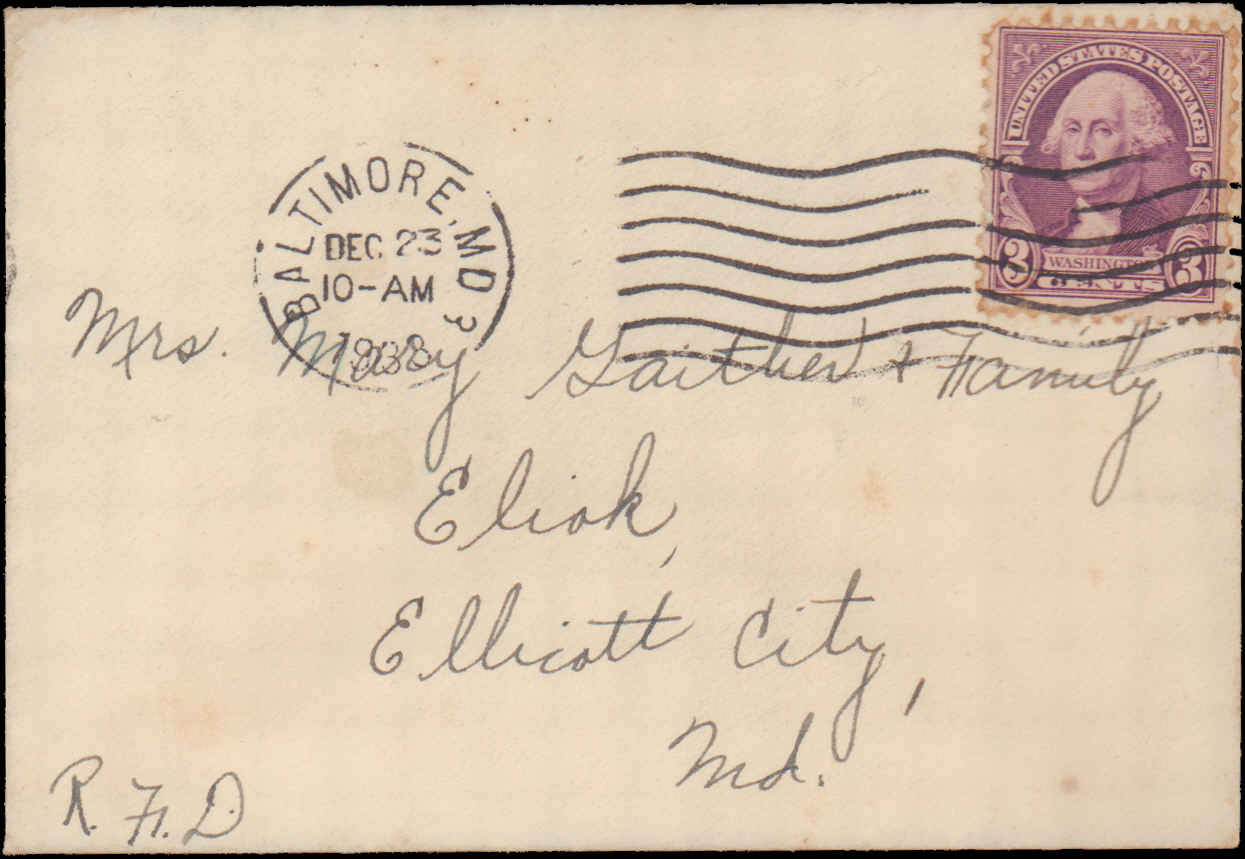 UNITED STATES POSTAGE
3 WASHINGTON 3
CENTS
BALTIMORE, MD 3
DEC 23
10-AM
1938
Mrs. Mary Gaither & Family
Eliok,
Ellicott City,
Md.
R.F.D.